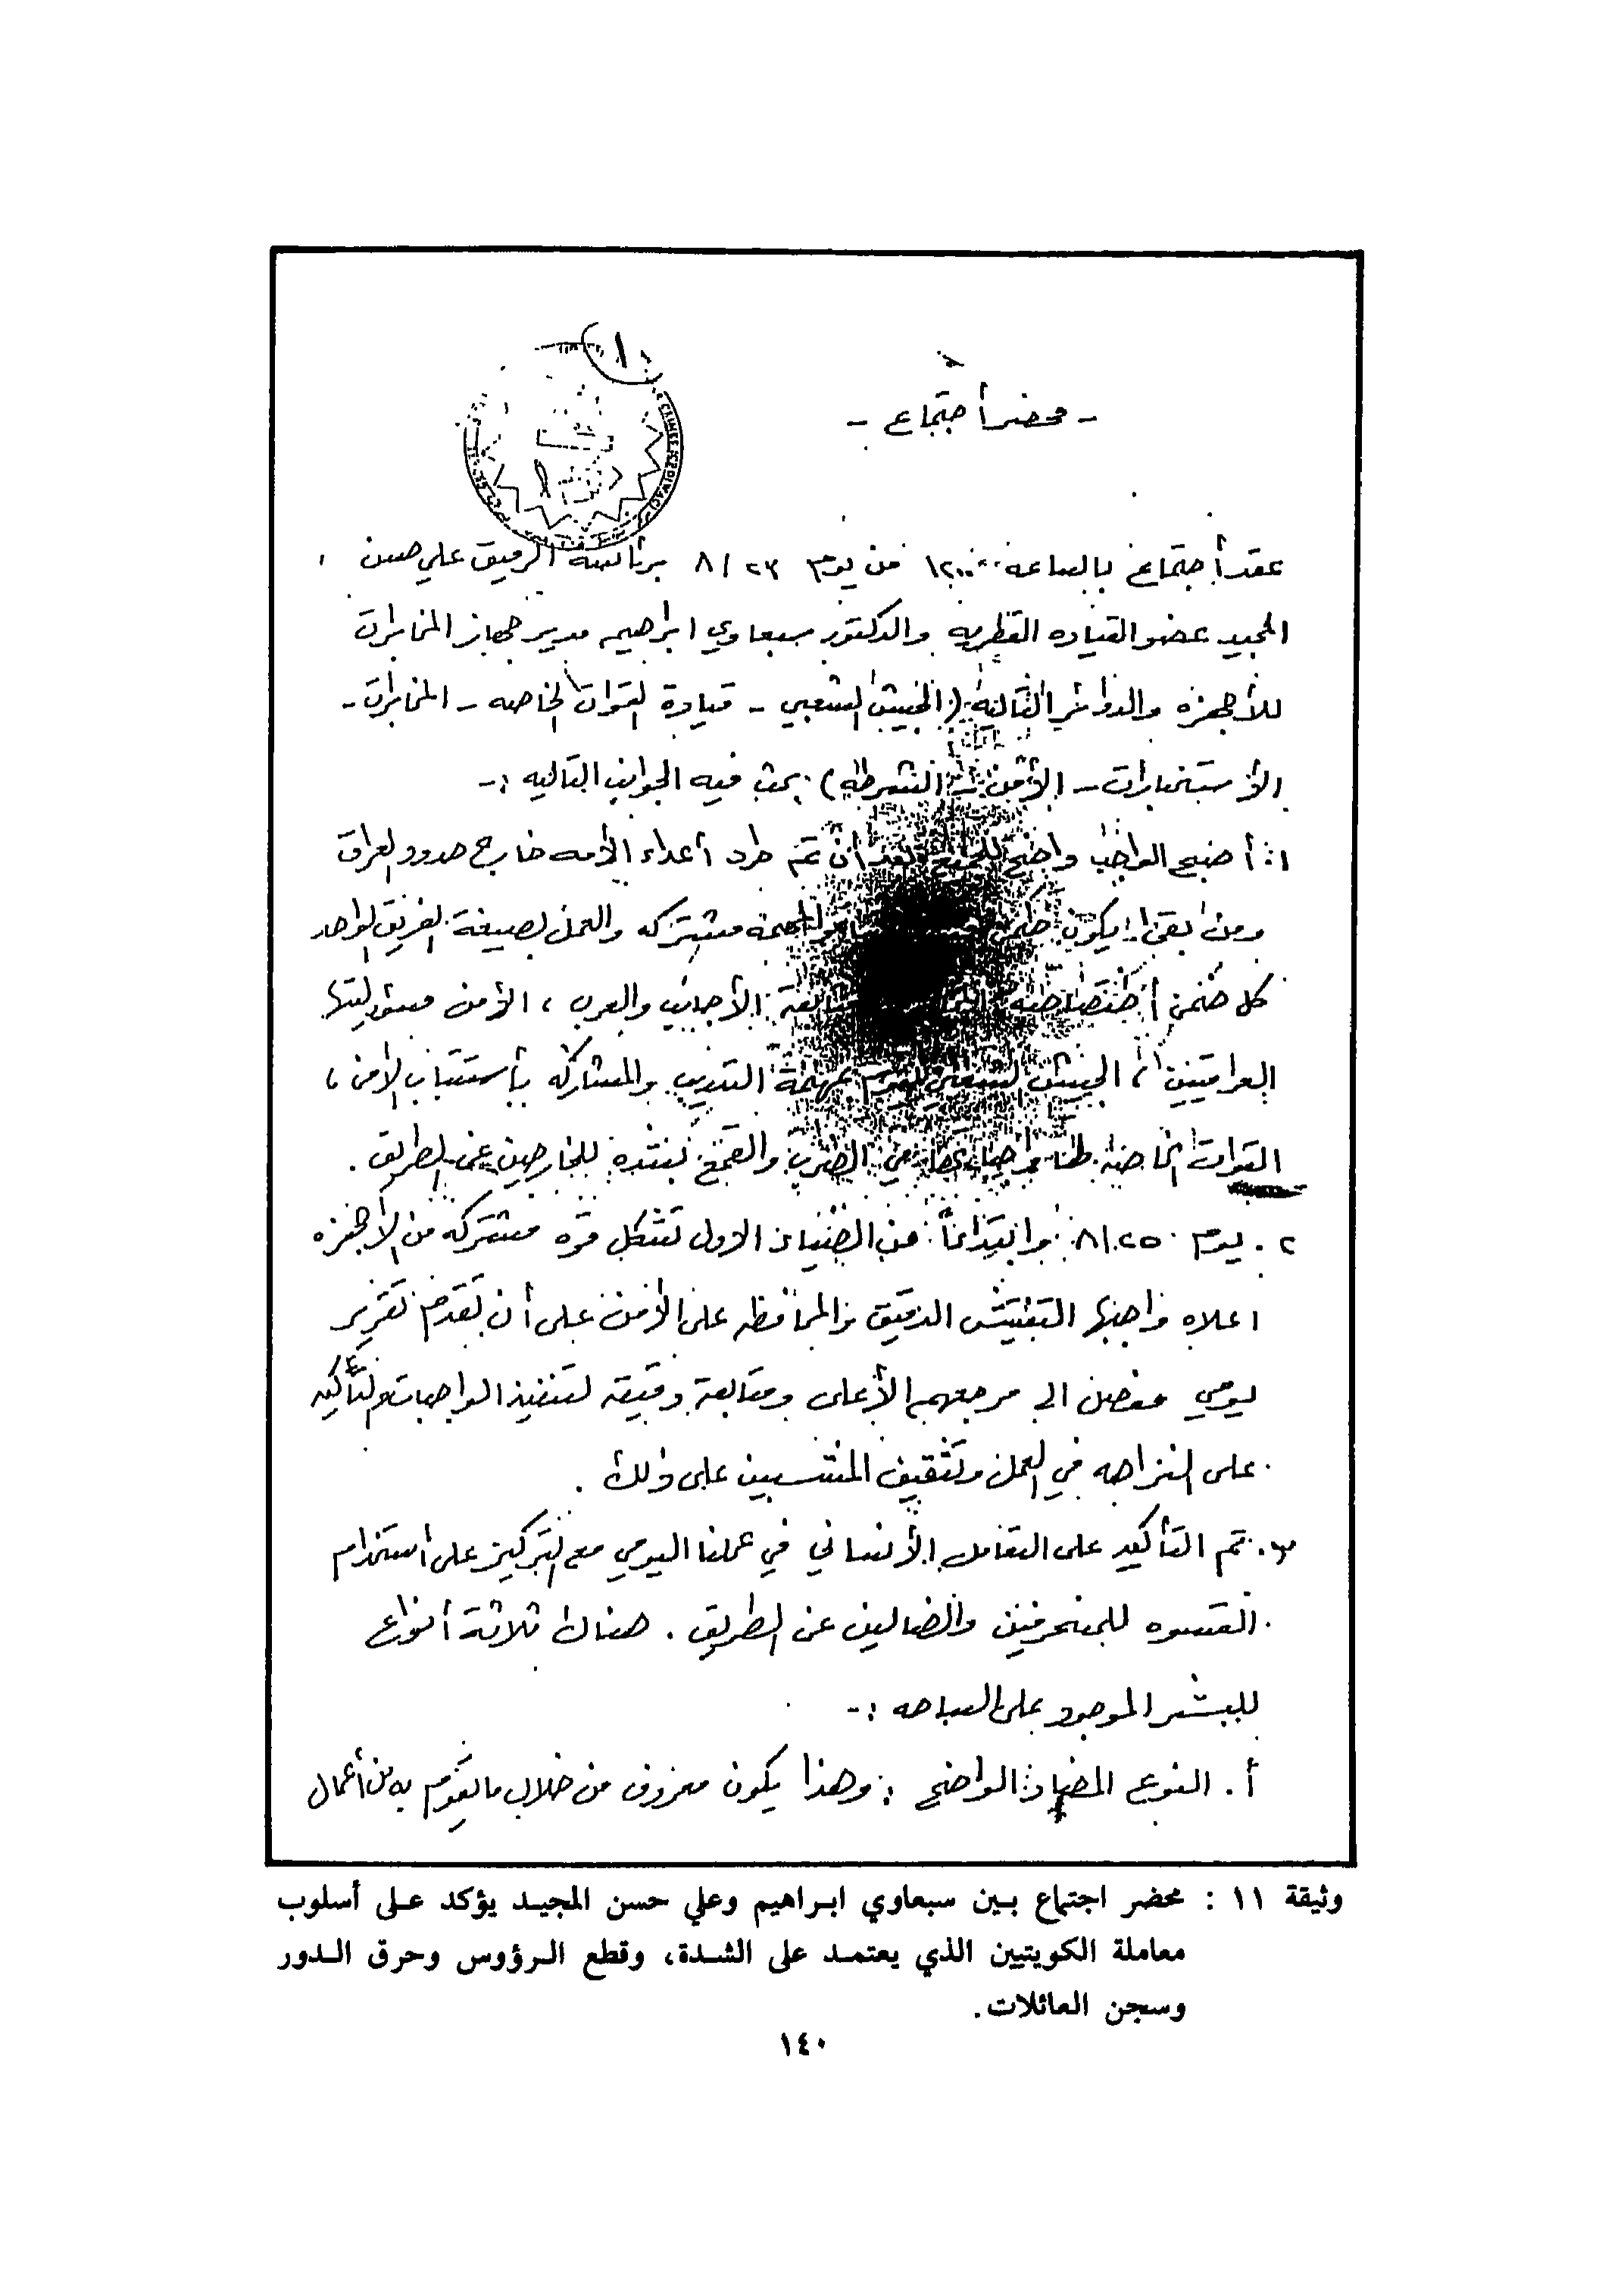 ١
- محضر أجتماع -
عقد أجتماع بالساعة ١٢٠٠ من يوم ٨/٢٣ برئاسة الرفيق علي حسن
المجيد عضو القياده القطريه والدكتور سبعاوي ابراهيم مدير جهاز المخابرات
للأجهزه والدوائر التاليه (الجيش الشعبي - قيادة القوات الخاصه - المخابرات -
الأستخبارات - الأمن - الشرطه) بحث فيه الجوانب التاليه :-
١. أصبح الواجب واضح للجميع بعد أن تم طرد أعداء الأمه خارج حدود العراق
ومن بقى يكون ضمن والمهمة مشتركه والعمل بصيغة الفريق الواحد
كل ضمن أختصاصه متابعة الأجانب والعرب ، الأمن مسئوليتها
العراقيين ، الجيش الشعبي يقوم بمهمة التدريب والمشاركه بأستتباب الأمن ،
القوات الخاصة في الضرب والقمع بشده للخارجين عن الطريق .
٢. يوم ٨/٢٥ وابتداءً من الضياء الاول تشكل قوه مشتركه من الأجهزه
اعلاه واجبها التفتيش الدقيق والمحافظه على الأمن على أن يقدم تقرير
يومي مفصل الى مرجعهم الأعلى ومتابعة دقيقه لتنفيذ الواجبات والتأكيد
على النزاهه في العمل وتثقيف المنتسبين على ذلك .
٣. تم التأكيد على التعامل الأنساني في عملنا اليومي مع التركيز على أستخدام
القسوه للمنحرفين والضالين عن الطريق . هناك ثلاثة أنواع
للبشر الموجود على الساحه :-
أ. النوع المضاد الواضح : وهذا يكون معروف من خلال ما يقوم به من أعمال
وثيقة ١١ : محضر اجتماع بين سبعاوي ابراهيم وعلي حسن المجيد يؤكد على أسلوب
معاملة الكويتيين الذي يعتمد على الشدة، وقطع الرؤوس وحرق الدور
وسجن العائلات.
١٤٠